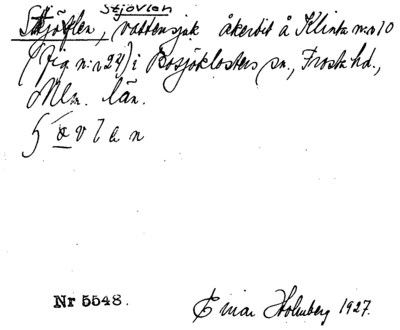 Stjövlan
Stjöflen, vattensjuk åkerbit å Klinta n:o 10
(Fig n:r 24) i Bosjöklosters sn., Frosta hd.,
Mlm. län.
Nr 5548.
Einar Holmberg 1927.